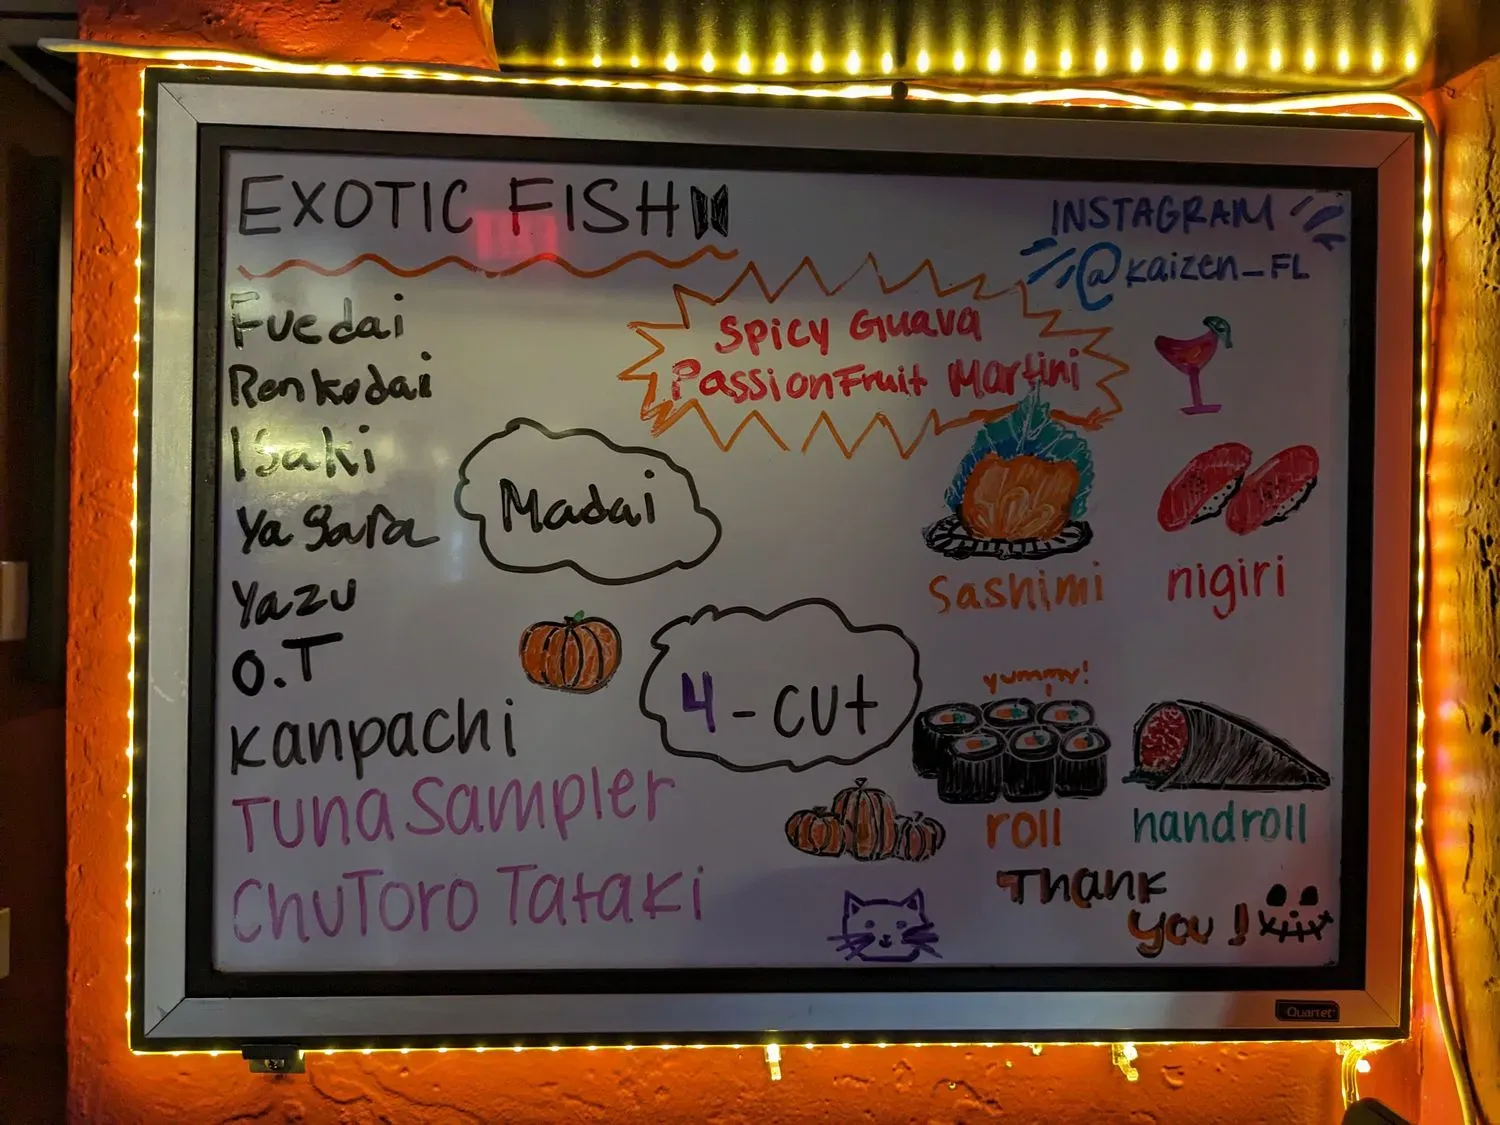 EXOTIC FISH
INSTAGRAM
@KAIZEN_FL
Fuedai
Renkodai
Isaki
Yagara
Yazu
O.T
Kanpachi
Tuna Sampler
ChuToro Tataki
Spicy Guava
PassionFruit Martini
Madai
4-cut
Sashimi
nigiri
yummy!
roll
handroll
Thank
you!
Quartet